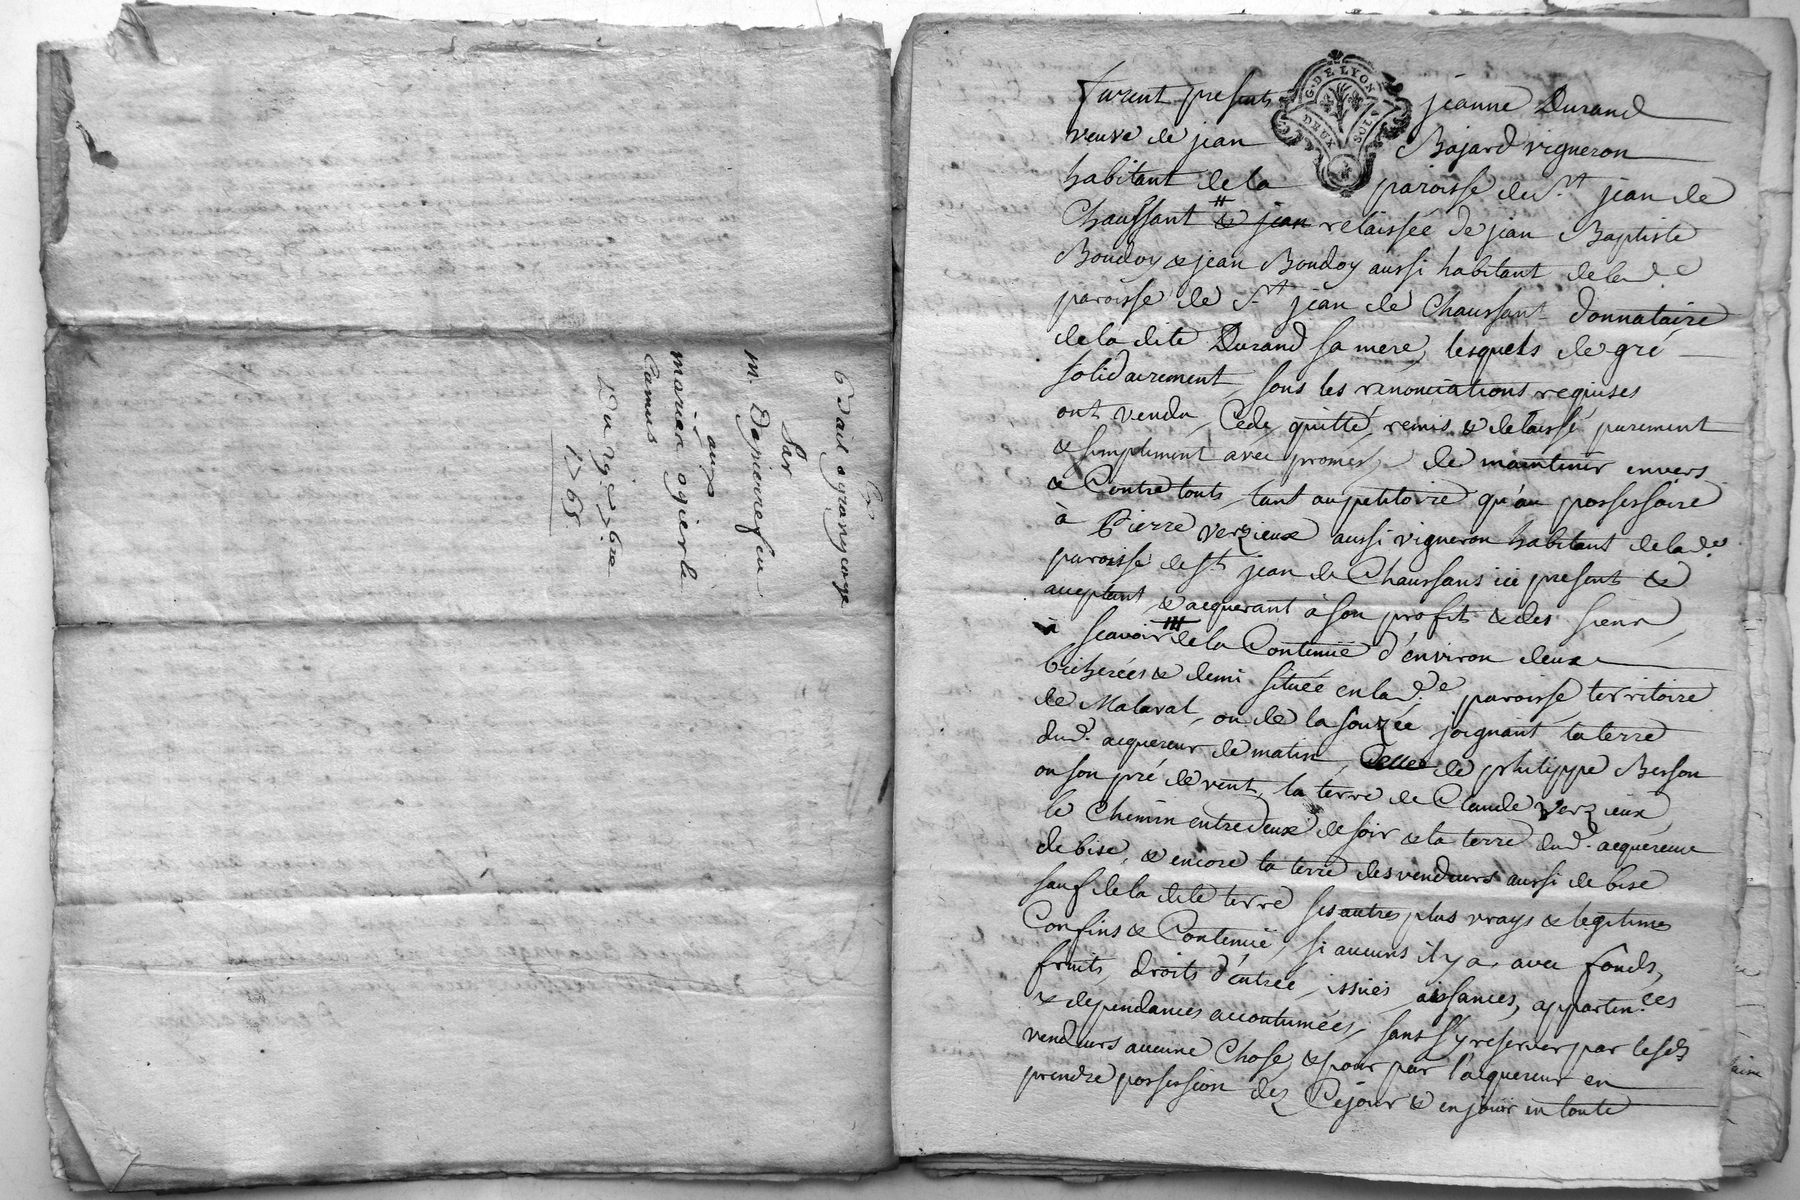 Bail a grangeage
Par
m. Dapieurefeu
aux
marier ogier le
Camus
Du 29e 7bre
1765
G. DE LYON
DEUX SOLS
furent presents jeanne Durand
veuve de jean Bajard vigneron
habitant de la paroisse de St jean de
Chaussant & jean relaissée de jean Baptiste
Boudoy & jean Boudoy aussi habitant de la de
paroisse de St jean de Chaussant donnataire
de la dite Durand sa mere, lesquels de gré
solidairement, sous les renonciations requises
ont vendu, Cede, quitté, remis & delaissé purement
& simplement avec promesse de maintenir envers
& Contre touts, tant au petitoire qu'au possessoire
à Pierre verzieux aussi vigneron habitant de la de
paroisse de St jean de Chaussans ici present &
acceptant & acquerant à son profit & des siens,
à scavoir de la Contenüe d'environ deux
bicherées & demi située en la de paroisse, territoire
de Malaval, ou de la souzée joignant la terre
dud. acquereur de matin, Celle de philippe Besson
ou son pré de vent, la terre de Claude verzieux,
le Chemin entredeux de soir & la terre dud. acquereur
de bise, & encore la terre des vendeurs aussi de bise
sauf de la dite terre ses autres plus vrays & legitimes
Confins & Contenüe, si aucuns il y a, avec fonds,
fruits, droits d'entrée, issües, aisances, appartin.ces
& dependances accoutumées, sans s'y reserver par lesds
vendeurs aucune Chose, & pour par l'acquereur en
prendre possession dez Cejour & en jouir en toute